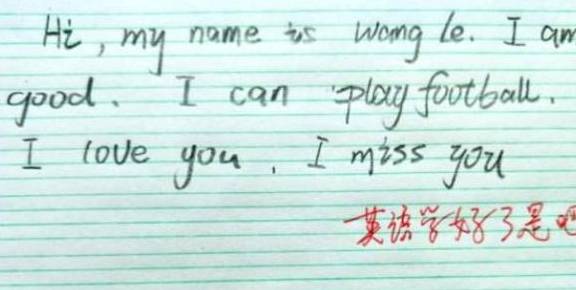 Hi, my name is Wang le. I am
good. I can play football.
I love you. I miss you
英语学好了是吧